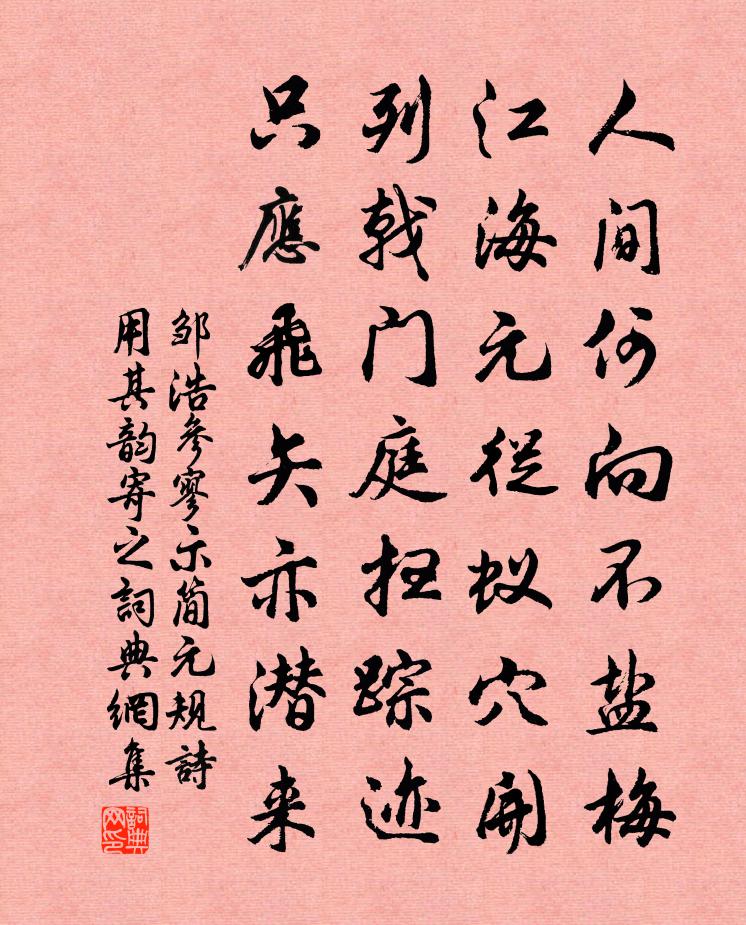 人间何向不盐梅
江海元從蚁穴開
列戟门庭扫踪迹
只應飛矢亦潜来
邹浩參寥示简元规詩
用其韵寄之詞典網集
詞典网印